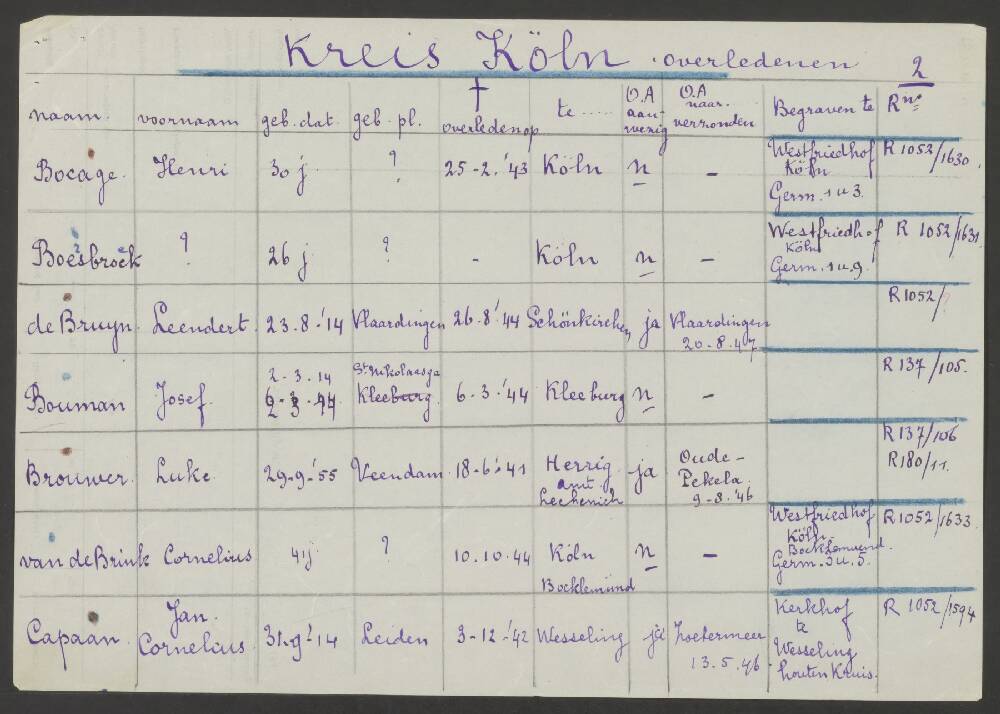 Kreis Köln . overledenen 2
naam. voornaam geb. dat. geb. pl. † overleden op te ..... O.A aan- wezig O.A naar. verzonden Begraven te R nº
Bocage. Henri 30 j ? 25-2.'43 Köln n - Westfriedhof Köln Germ. 1 u 3. R 1052/1630.
Boesbroek ? ? 26 j ? - Köln n - Westfriedhof Köln Germ. 1 u. 9. R 1052/1631
de Bruyn. Leendert. 23.8-'14 Vlaardingen 26.8'44 Schönkirchen ja Vlaardingen 20.8.47 R 1052/?
Bouman Josef. 2-3.14 St. Nikolaasga Kleeburg 6-3.'44 Kleeburg n - R 137/105.
Brouwer. Luke. 29-9-'55 Veendam 18-6-'41 Herrig amt Lechenich ja Oude-Pekela. 9-8.'46 R 137/106 R 180/11.
van de Brink Cornelius 41j ? 10.10.44 Köln Bocklemünd n - Westfriedhof Köln. Bocklemuend. Germ. 3 u. 5. R 1052/1633.
Capaan. Jan. Cornelius 31.9?-14 Leiden 3-12-'42 Wesseling ja Zoetermeer 13.5.'46 Kerkhof te Wesseling houten Kruis. R 1052/1594